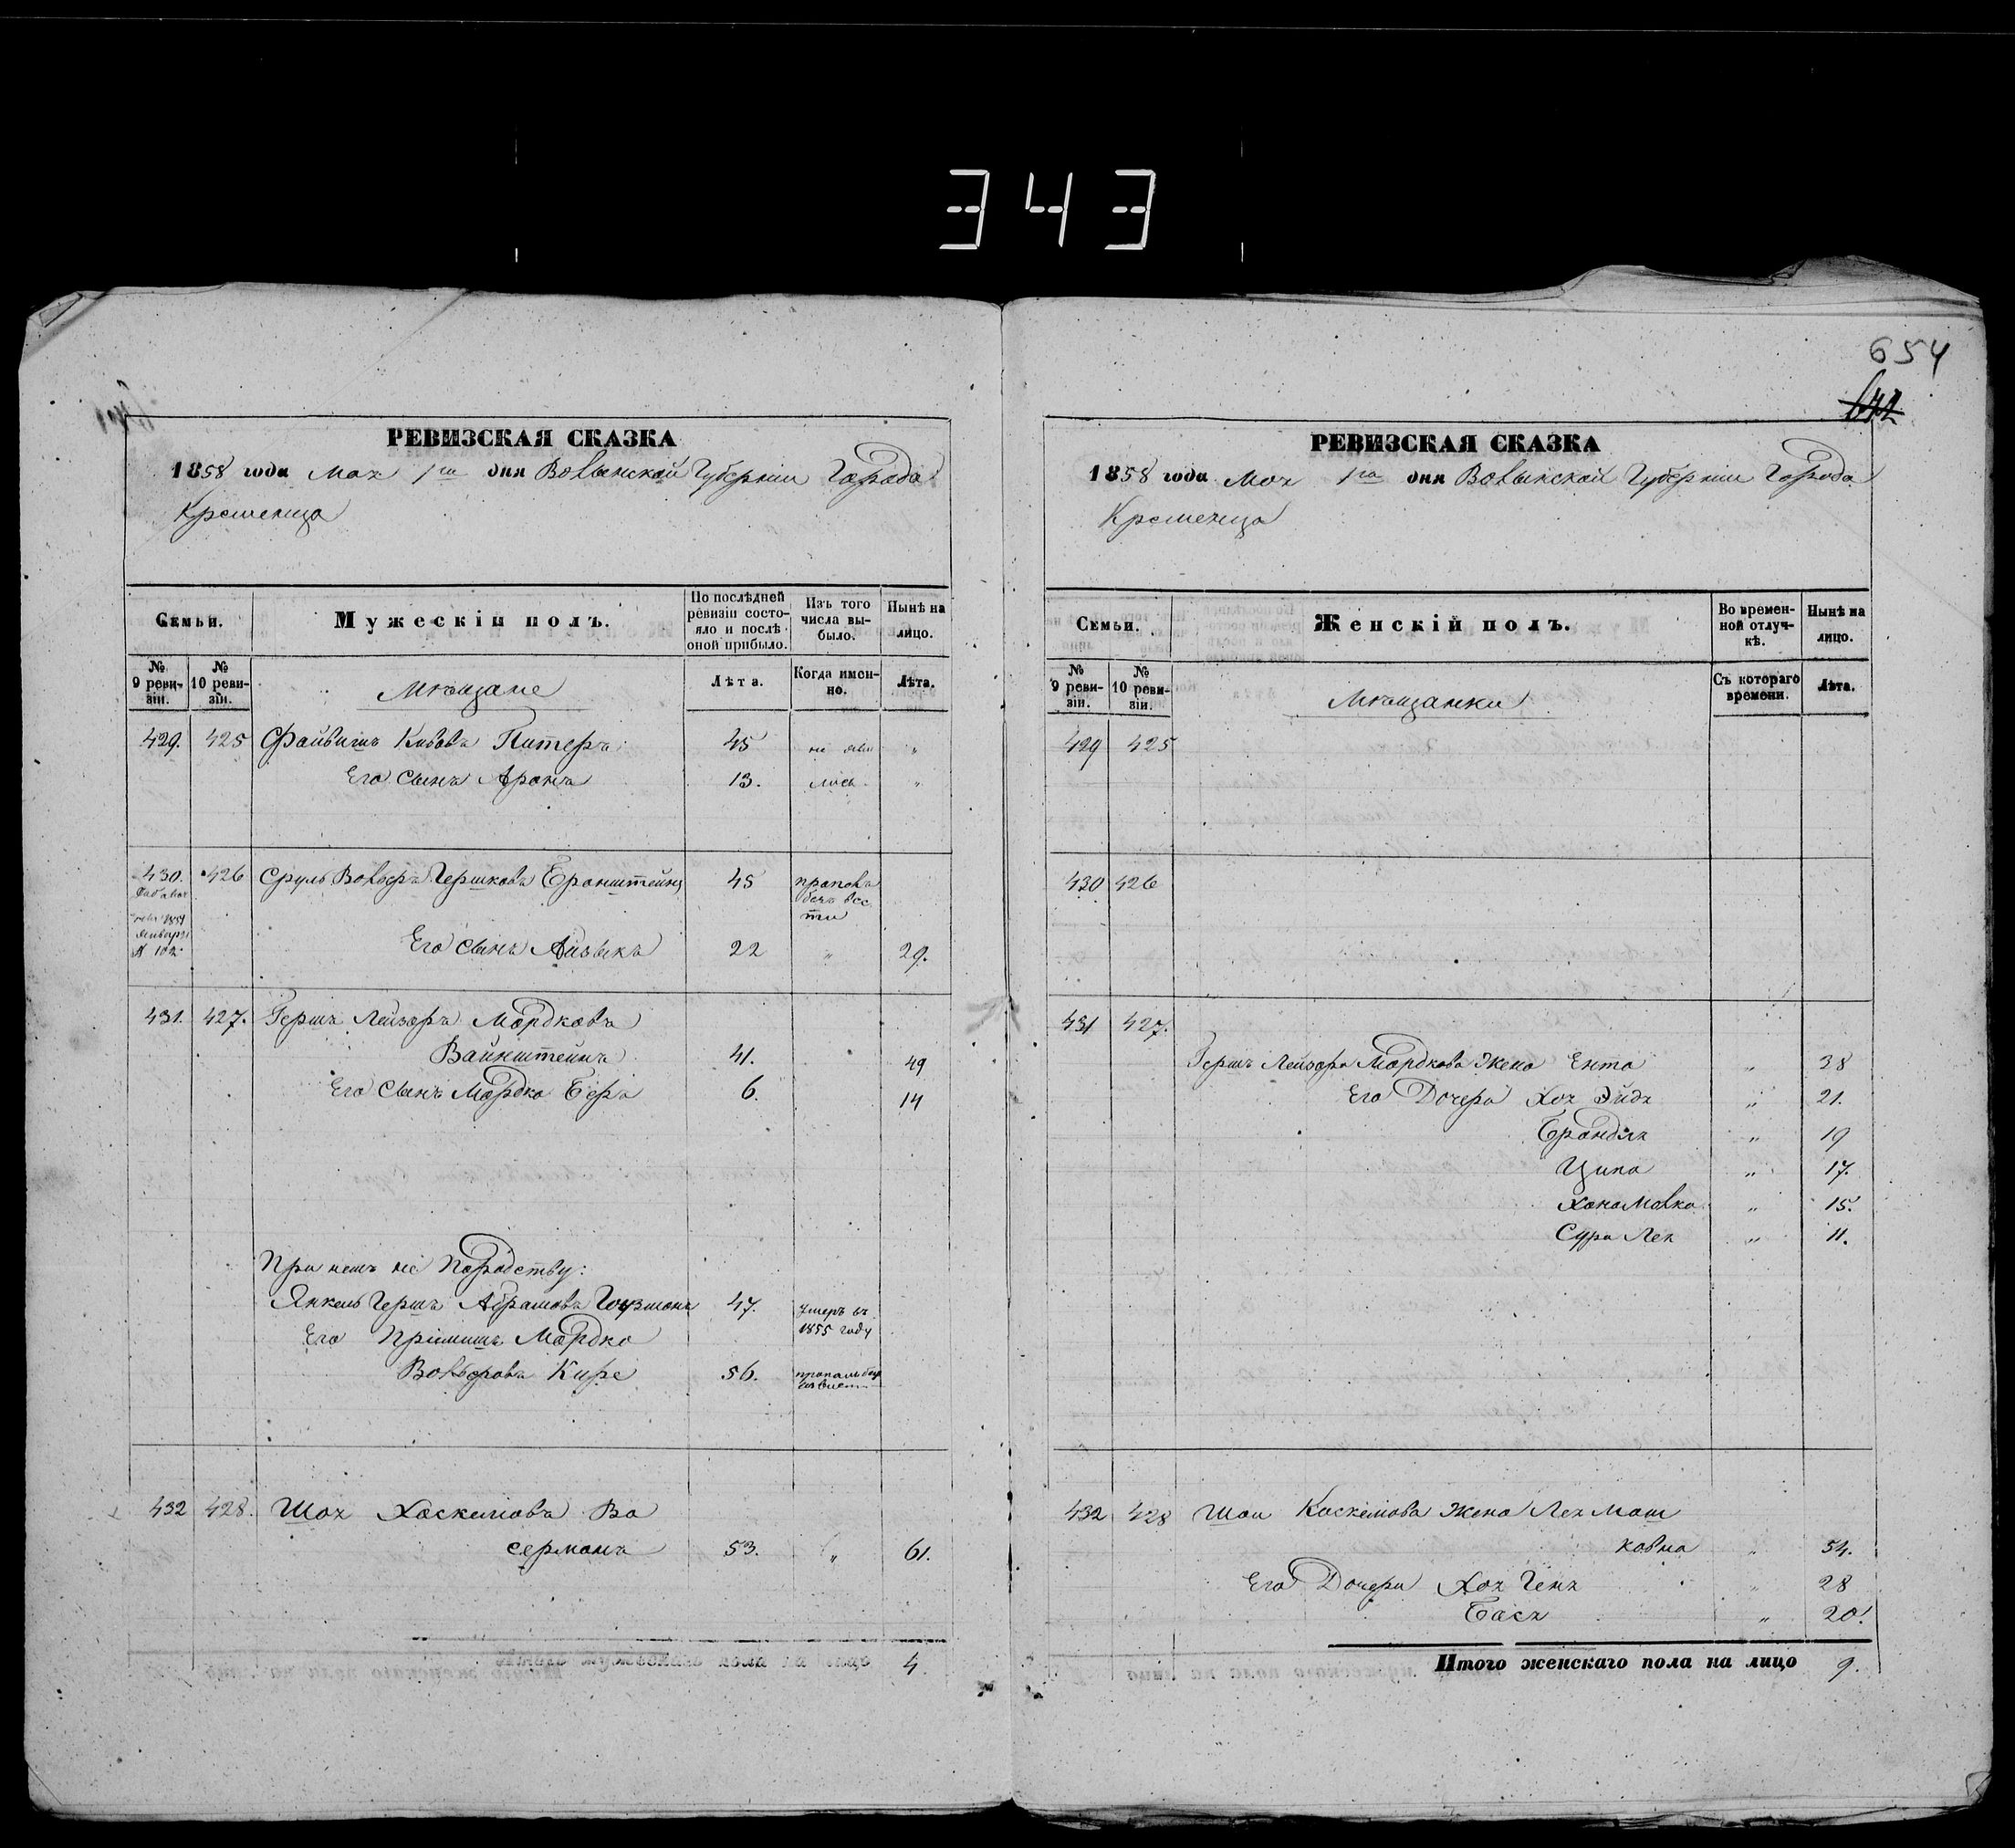 343
654
642
РЕВИЗСКАЯ СКАЗКА
1858 года Мая 1го дня Волынской Губерніи Города
Кременца
Семьи.
Мужескій полъ.
По послѣдней ревизіи состояло и послѣ оной прибыло.
Изъ того числа выбыло.
Нынѣ на лицо.
№ 9 ревизіи.
№ 10 ревизіи.
Мѣщане
Лѣта.
Когда именно.
Лѣта.
429. 425 Файвишъ Кивовъ Питеръ 45 не яви "
Его Сынъ Аронъ 13. лись "
430. 426 Сруль Вольфъ Гершковъ Бронштейнъ 45 проповъ безъ вес ти
1851 Января № 102
Его Сынъ Айзыкъ 22 " 29.
431. 427. Гершъ Лейзоръ Мордковъ
Вайнштейнъ 41. 49
Его Сынъ Мордко Беръ 6. 14
При немъ не Породству:
Янкель Гершъ Абрамовъ Гоузманъ 47. Умеръ въ 1855 году
Его Пріимышъ Мордко
Вольфовъ Кире 56. пропалъ безъ
432 428. Шая Хаскелювъ Ва
серманъ 53. " 61.
Итого мужескаго пола на лицо 4.
РЕВИЗСКАЯ СКАЗКА
1858 года Мая 1го дня Волынской Губерніи Города
Кременца
Семьи.
Женскій полъ.
Во временной отлучкѣ.
Нынѣ на лицо.
№ 9 ревизіи.
№ 10 ревизіи.
Мѣщанки
Съ котораго времени.
Лѣта.
429 425
430 426
431 427.
Гершъ Лейзора Мордкова Жена Ента " 38
Его Дочери Хая Эйдя " 21.
Брандля " 19
Ципа " 17.
Хана Малка " 15.
Сура Лея " 11.
432 428 Шаи Хаскелюва Жена Лея Мош
ковна " 54.
Его Дочери Хая Геня " 28
Бася " 20.
Итого женскаго пола на лицо 9.